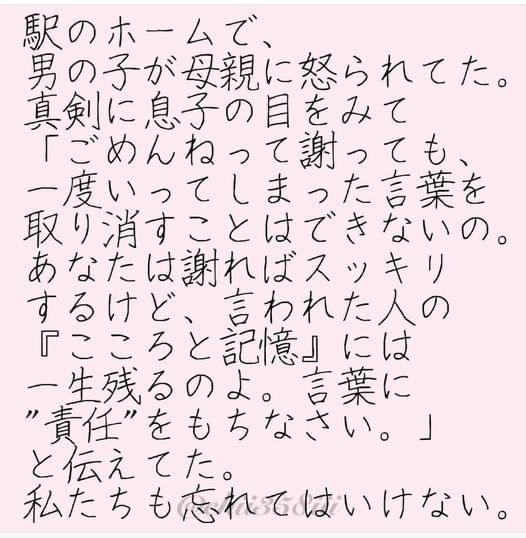 駅のホームで、
男の子が母親に怒られてた。
真剣に息子の目をみて
「ごめんねって謝っても、
一度いってしまった言葉を
取り消すことはできないの。
あなたは謝ればスッキリ
するけど、言われた人の
『こころと記憶』には
一生残るのよ。言葉に
"責任"をもちなさい。」
と伝えてた。
私たちも忘れてはいけない。